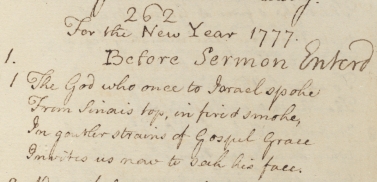 262
For the New Year 1777.
1. Before Sermon Enterd
1 The God who once to Israel spoke
From Sinais top, in fire & smoke,
In gentler strains of Gospel Grace
Invites us now to seek his face.